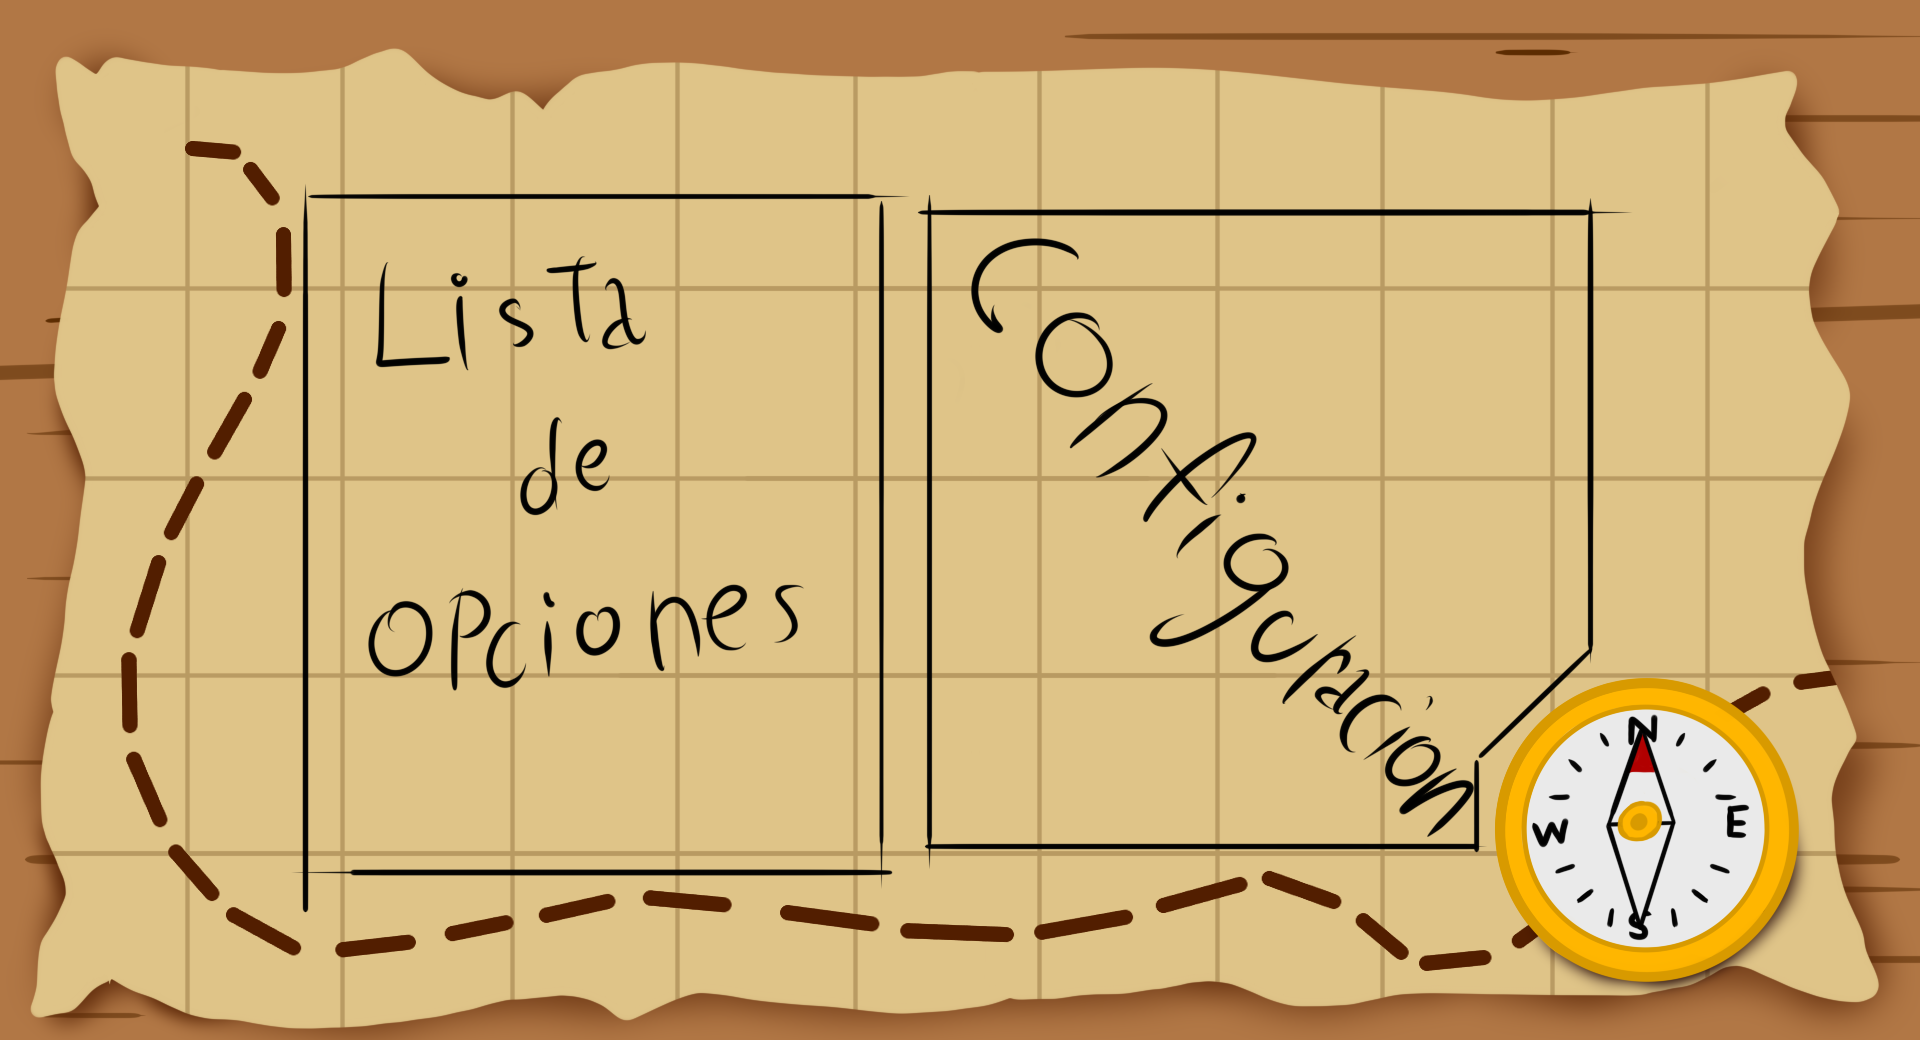 Lista
de
opciones
Configuración
N
W
E
S